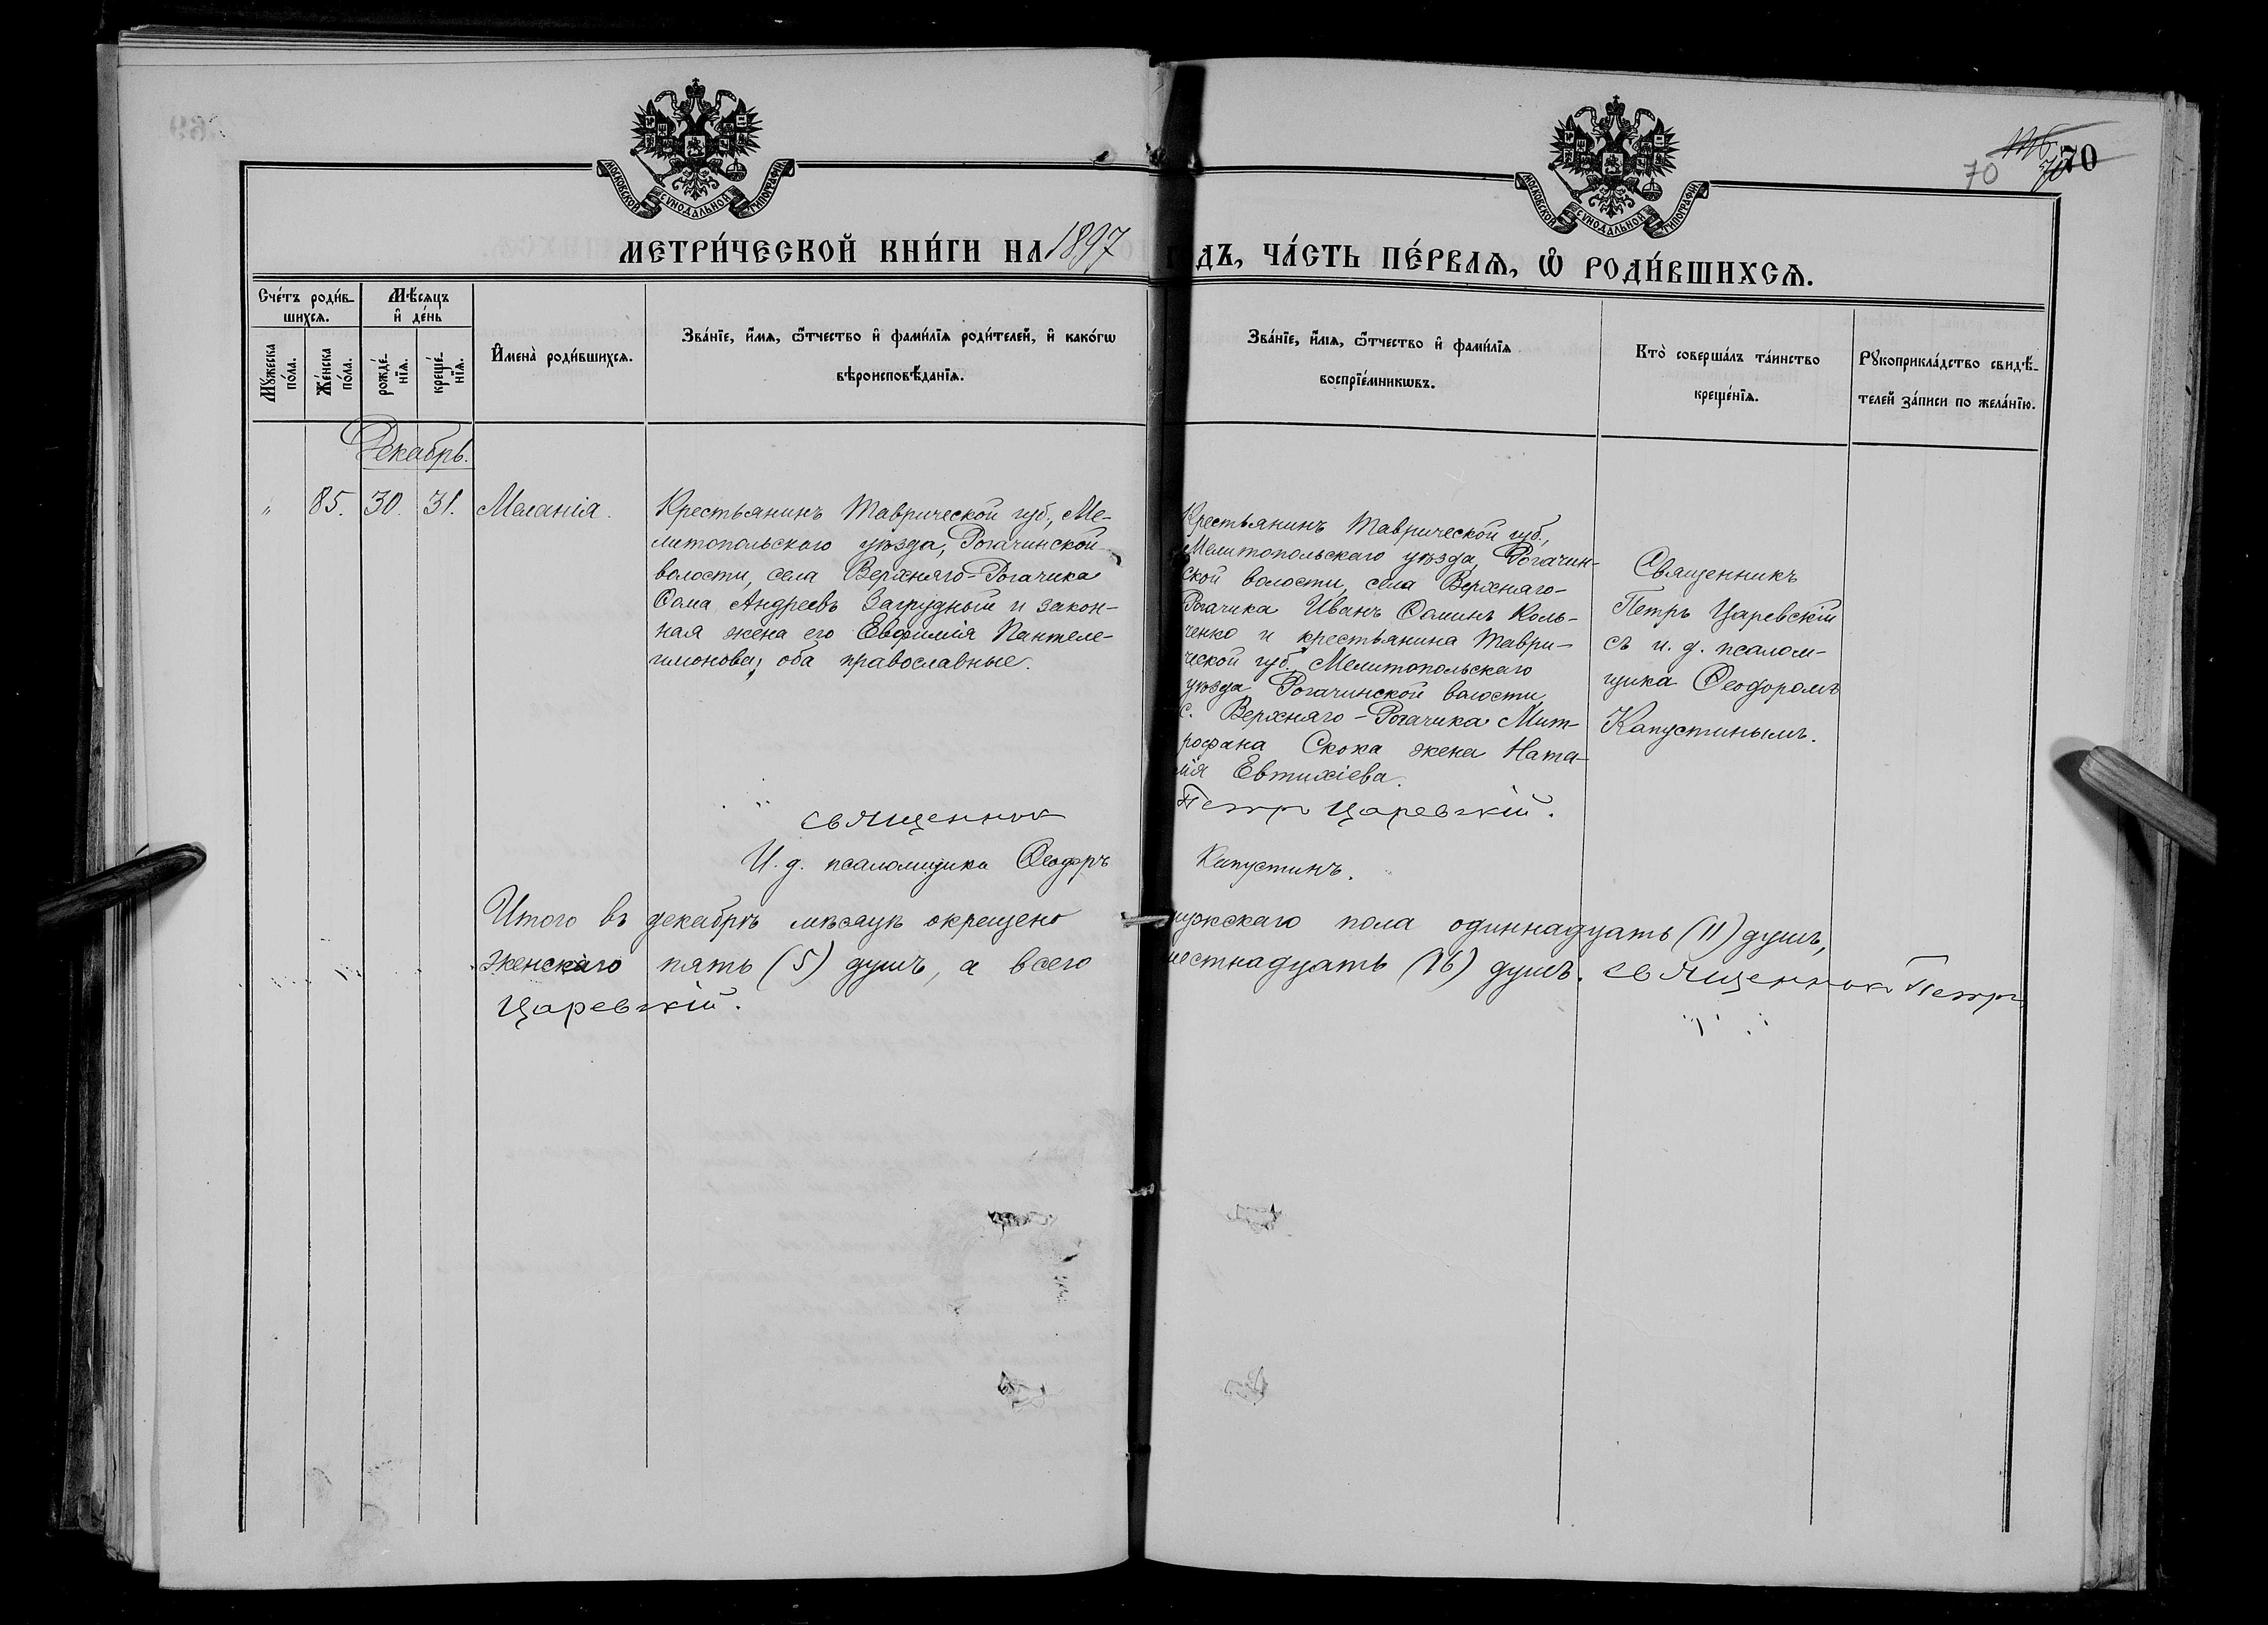 70
70
70
МОСКОВСКОЙ СУНОДАЛЬНОЙ ТИПОГРАФІИ
МОСКОВСКОЙ СУНОДАЛЬНОЙ ТИПОГРАФІИ
МЕТРИ́ЧЕСКОЙ КНИ́ГИ НА 1897
ДЪ, ЧА́СТЬ ПЕ́РВАѦ, Ѡ҆ РОДИ́ВШИХСѦ.
Сче́тъ роди́в-
шихсѧ.
Мѣ́сѧцъ
и҆ де́нь
Мꙋ́жеска
по́ла.
Же́нска
по́ла.
рожде́-
нїѧ.
креще́-
нїѧ.
И҆мена̀ роди́вшихсѧ.
Зва́нїе, и҆́мѧ, ѻ҆́тчество и҆ фами́лїѧ роди́телей, и҆ како́гѡ
вѣроисповѣ́данїѧ.
Зва́нїе, и҆́мѧ, ѻ҆́тчество и҆ фами́лїѧ
воспрїе́мникѡвъ.
Кто̀ соверша́лъ та́инство
креще́нїѧ.
Рꙋкоприкла́дство свидѣ́-
телей за́писи по жела́нїю.
Декабрь.
" 85. 30. 31. Меланія.
Крестьянинъ Таврической губ., Ме-
литопольскаго уѣзда, Рогачинской
волости, села Верхняго-Рогачика
Ѳома Андреевъ Загрудный и закон-
ная жена его Евфимія Пантеле-
имонова; оба православные.
Крестьянинъ Таврической губ.,
Мелитопольскаго уѣзда, Рогачин-
ской волости, села Верхняго-
Рогачика Иванъ Ѳоминъ Коль-
ченко и крестьянина Таври-
ческой губ., Мелитопольскаго
уѣзда, Рогачинской волости,
с. Верхняго-Рогачика Мит-
рофана Скока жена Ната-
лія Евтихіева.
Священникъ
Петръ Царевскій
съ и. д. псалом-
щика Ѳеодоромъ
Капустинымъ.
Священникъ Петръ Царевскій.
И. д. псаломщика Ѳеодоръ Капустинъ.
Итого въ декабрѣ мѣсяцѣ окрещено мужскаго пола одиннадцать (11) душъ,
женскаго пять (5) душъ, а всего шестнадцать (16) душъ. Священникъ Петръ
Царевскій.